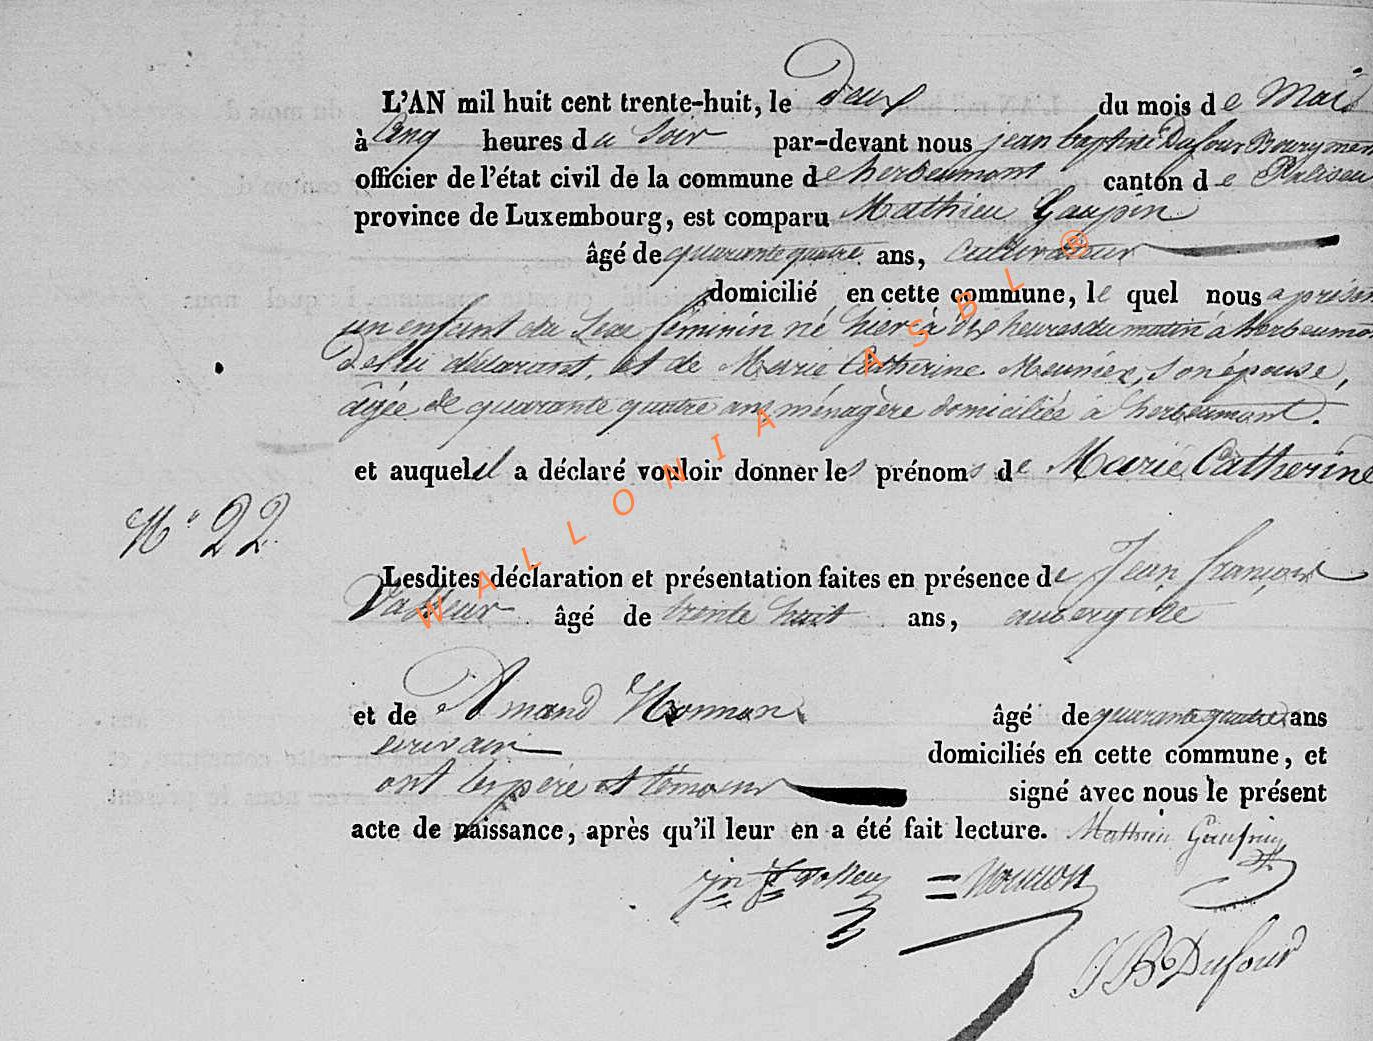 L'AN mil huit cent trente-huit, le Deux du mois de Mai
à Cinq heures du Soir par-devant nous jean baptiste Dufour Bourgmen
officier de l'état civil de la commune de herbeumont canton de Paliseu
province de Luxembourg, est comparu Mathieu Gaupin
âgé de quarante quatre ans, cultivateur
domicilié en cette commune, le quel nous a présen
un enfant du Sexe féminin né hier à dix heures du matin à herbeumon
De lui déclarant, et de Marie Catherine Meunier, son épouse,
âgée de quarante quatre ans ménagère domiciliée à herbeumont.
et auquel il a déclaré vouloir donner les prénoms de Marie Catherine
N° 22
Lesdites déclaration et présentation faites en présence de Jean françois
âgé de trente huit ans, aubergiste
et de Amand âgé de quarante quatre ans
écrivain domiciliés en cette commune, et
ont les père et témoins signé avec nous le présent
acte de naissance, après qu'il leur en a été fait lecture. Mathieu
J B Dufour
WALLONIA ASBL ®